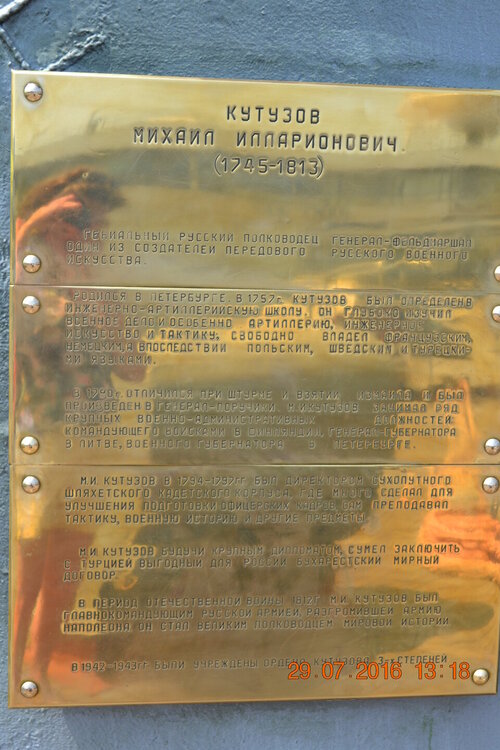 КУТУЗОВ
МИХАИЛ ИЛЛАРИОНОВИЧ.
(1745-1813)
ГЕНИАЛЬНЫЙ РУССКИЙ ПОЛКОВОДЕЦ ГЕНЕРАЛ-ФЕЛЬДМАРШАЛ
ОДИН ИЗ СОЗДАТЕЛЕЙ ПЕРЕДОВОГО РУССКОГО ВОЕННОГО
ИСКУССТВА.
РОДИЛСЯ В ПЕТЕРБУРГЕ. В 1757г. КУТУЗОВ БЫЛ ОПРЕДЕЛЕН В
ИНЖЕНЕРНО-АРТИЛЛЕРИЙСКУЮ ШКОЛУ. ОН ГЛУБОКО ИЗУЧИЛ
ВОЕННОЕ ДЕЛО И ОСОБЕННО АРТИЛЛЕРИЮ, ИНЖЕНЕРНОЕ
ИСКУССТВО И ТАКТИКУ, СВОБОДНО ВЛАДЕЛ ФРАНЦУЗСКИМ,
НЕМЕЦКИМ, А ВПОСЛЕДСТВИИ ПОЛЬСКИМ, ШВЕДСКИМ И ТУРЕЦКИ-
МИ ЯЗЫКАМИ.
В 1790г. ОТЛИЧИЛСЯ ПРИ ШТУРМЕ И ВЗЯТИИ ИЗМАИЛА И БЫЛ
ПРОИЗВЕДЕН В ГЕНЕРАЛ-ПОРУЧИКИ. М.И.КУТУЗОВ ЗАНИМАЛ РЯД
КРУПНЫХ ВОЕННО-АДМИНИСТРАТИВНЫХ ДОЛЖНОСТЕЙ
КОМАНДУЮЩЕГО ВОЙСКАМИ В ФИНЛЯНДИИ, ГЕНЕРАЛ-ГУБЕРНАТОРА
В ЛИТВЕ, ВОЕННОГО ГУБЕРНАТОРА В ПЕТЕРБУРГЕ.
М.И. КУТУЗОВ В 1794-1797гг. БЫЛ ДИРЕКТОРОМ СУХОПУТНОГО
ШЛЯХЕТСКОГО КАДЕТСКОГО КОРПУСА, ГДЕ МНОГО СДЕЛАЛ ДЛЯ
УЛУЧШЕНИЯ ПОДГОТОВКИ ОФИЦЕРСКИХ КАДРОВ, САМ ПРЕПОДАВАЛ
ТАКТИКУ, ВОЕННУЮ ИСТОРИЮ И ДРУГИЕ ПРЕДМЕТЫ.
М.И. КУТУЗОВ БУДУЧИ КРУПНЫМ ДИПЛОМАТОМ, СУМЕЛ ЗАКЛЮЧИТЬ
С ТУРЦИЕЙ ВЫГОДНЫЙ ДЛЯ РОССИИ БУХАРЕСТСКИЙ МИРНЫЙ
ДОГОВОР.
В ПЕРИОД ОТЕЧЕСТВЕННОЙ ВОЙНЫ 1812г. М.И. КУТУЗОВ БЫЛ
ГЛАВНОКОМАНДУЮЩИМ РУССКОЙ АРМИЕЙ, РАЗГРОМИВШЕЙ АРМИЮ
НАПОЛЕОНА ОН СТАЛ ВЕЛИКИМ ПОЛКОВОДЦЕМ МИРОВОЙ ИСТОРИИ
В 1942-1943гг. БЫЛИ УЧРЕЖДЕНЫ ОРДЕНА КУТУЗОВА 3-х СТЕПЕНЕЙ
29.07.2016 13:18